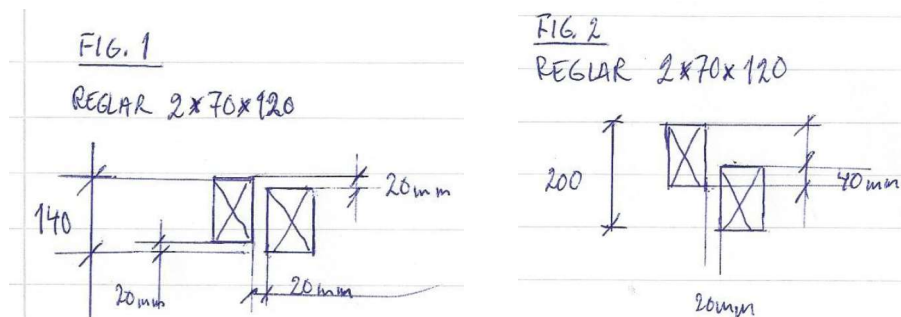 FIG. 1
REGLAR 2x70x120
20mm
140
20mm
20mm
FIG. 2
REGLAR 2x70x120
200
40mm
20mm